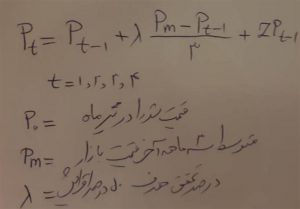 Pt = Pt-1 + λ (Pm - Pt-1)/۳ + ZPt-1
t = ۱, ۲, ۳, ۴
P۰ = قیمت سهم در تیر ماه
Pm = متوسط سه ماهه آخر قیمت بازار
λ = درصد تحقق هدف ۲۰ درصد افزایش